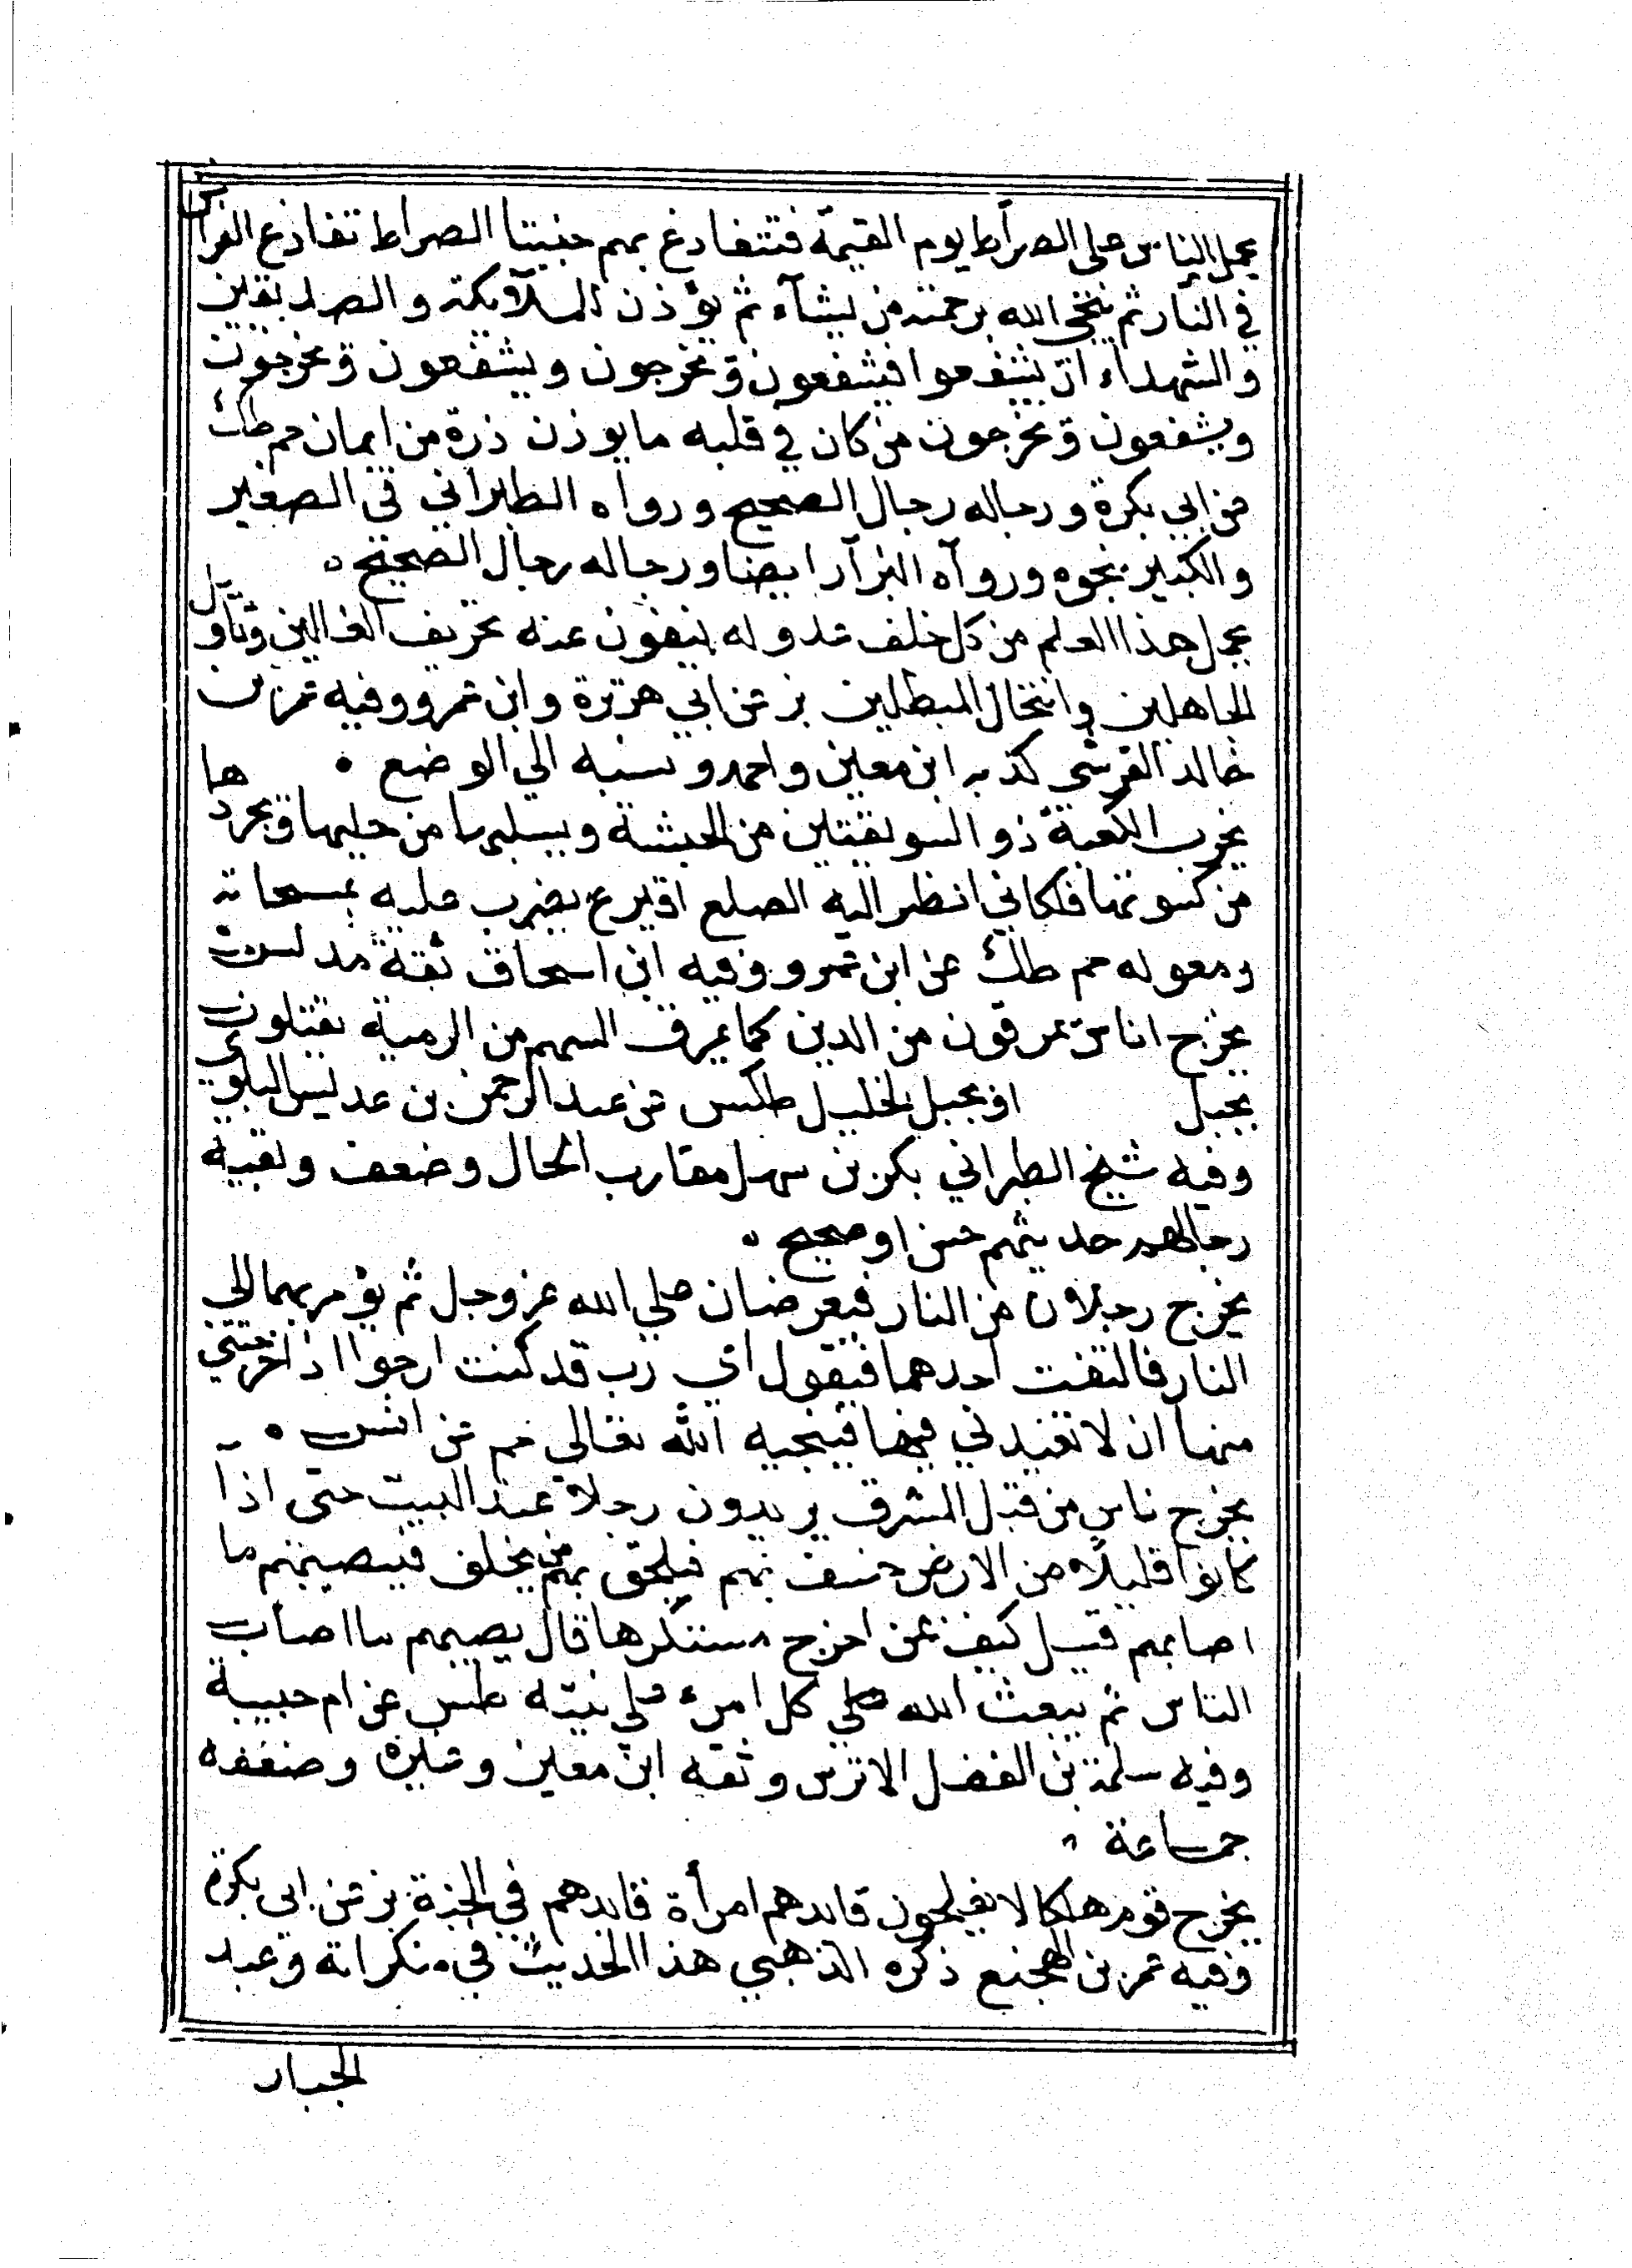 يحمل الناس على الصراط يوم القيمة فتتقادع بهم جنبيتا الصراط تقادع الفراش
في النار ثم ينجي الله برحمته من يشآء ثم يؤذن للملآئكة والصديقين
والشهداء ان يشفعوا فيشفعون ويخرجون ويشفعون ويخرجون
ويشفعون ويخرجون من كان في قلبه ما يوزن ذرة من ايمان حم طك
عن ابي بكرة ورجاله رجال الصحيح ورواه الطبراني في الصغير
والكبير بنحوه ورواه البزار ايضا ورجاله رجال الصحيح
يحمل هذا العلم من كل خلف عدوله ينفون عنه تحريف الغالين وتأويل
الجاهلين وانتحال المبطلين بز عن ابي هريرة وابن عمرو وفيه عمر بن
خالد القرشي كذبه ابن معين واحمد ونسبه الي الوضع
يخرب الكعبة ذو السويقتين من الحبشة ويسلبها من حليها ويجردها
من كسوتها فلكاني انظر اليه اصلع افيدع يضرب عليه بمسحاته
ومعوله حم طك عن ابن عمرو وفيه ابن اسحاق ثقة مدلس
يخرج اناس يمرقون من الدين كما يمرق السهم من الرمية يقتلون
بجبل او بجبل الخليل طكس عن عبد الرحمن بن عديس البلوي
وفيه شيخ الطبراني بكر بن سهل مقارب الحال وضعف وبقية
رجاله حديثهم حسن او صحيح
يخرج رجلان من النار فيعرضان علي الله عز وجل ثم يؤمر بهما الي
النار فالتفت احدهما فيقول اي رب قد كنت ارجوا اذ اخرجتني
منها ان لا تعيدني فيها فينجيه الله تعالى حم عن انس
يخرج ناس من قبل المشرق يريدون رجلا عند البيت حتى اذا
كانوا قليلا من الارض خسف بهم فيلحق بهم من يخلف فيصيبهم ما
اصابهم قيل كيف بمن اخرج مستكرها قال يصيبهم ما اصاب
الناس ثم يبعث الله كل امرء علي نيته طس عن ام حبيبة
وفيه سلمة بن الفضل الابرش وثقه ابن معين وغيره وضعفه
جماعة
يخرج قوم هلكا لا يفلحون قايدهم امرأة قايدهم في الجنة بز عن ابي بكرة
وفيه عمر بن الهجنع ذكره الذهبي هذا الحديث في منكراته وعبد
الجبار